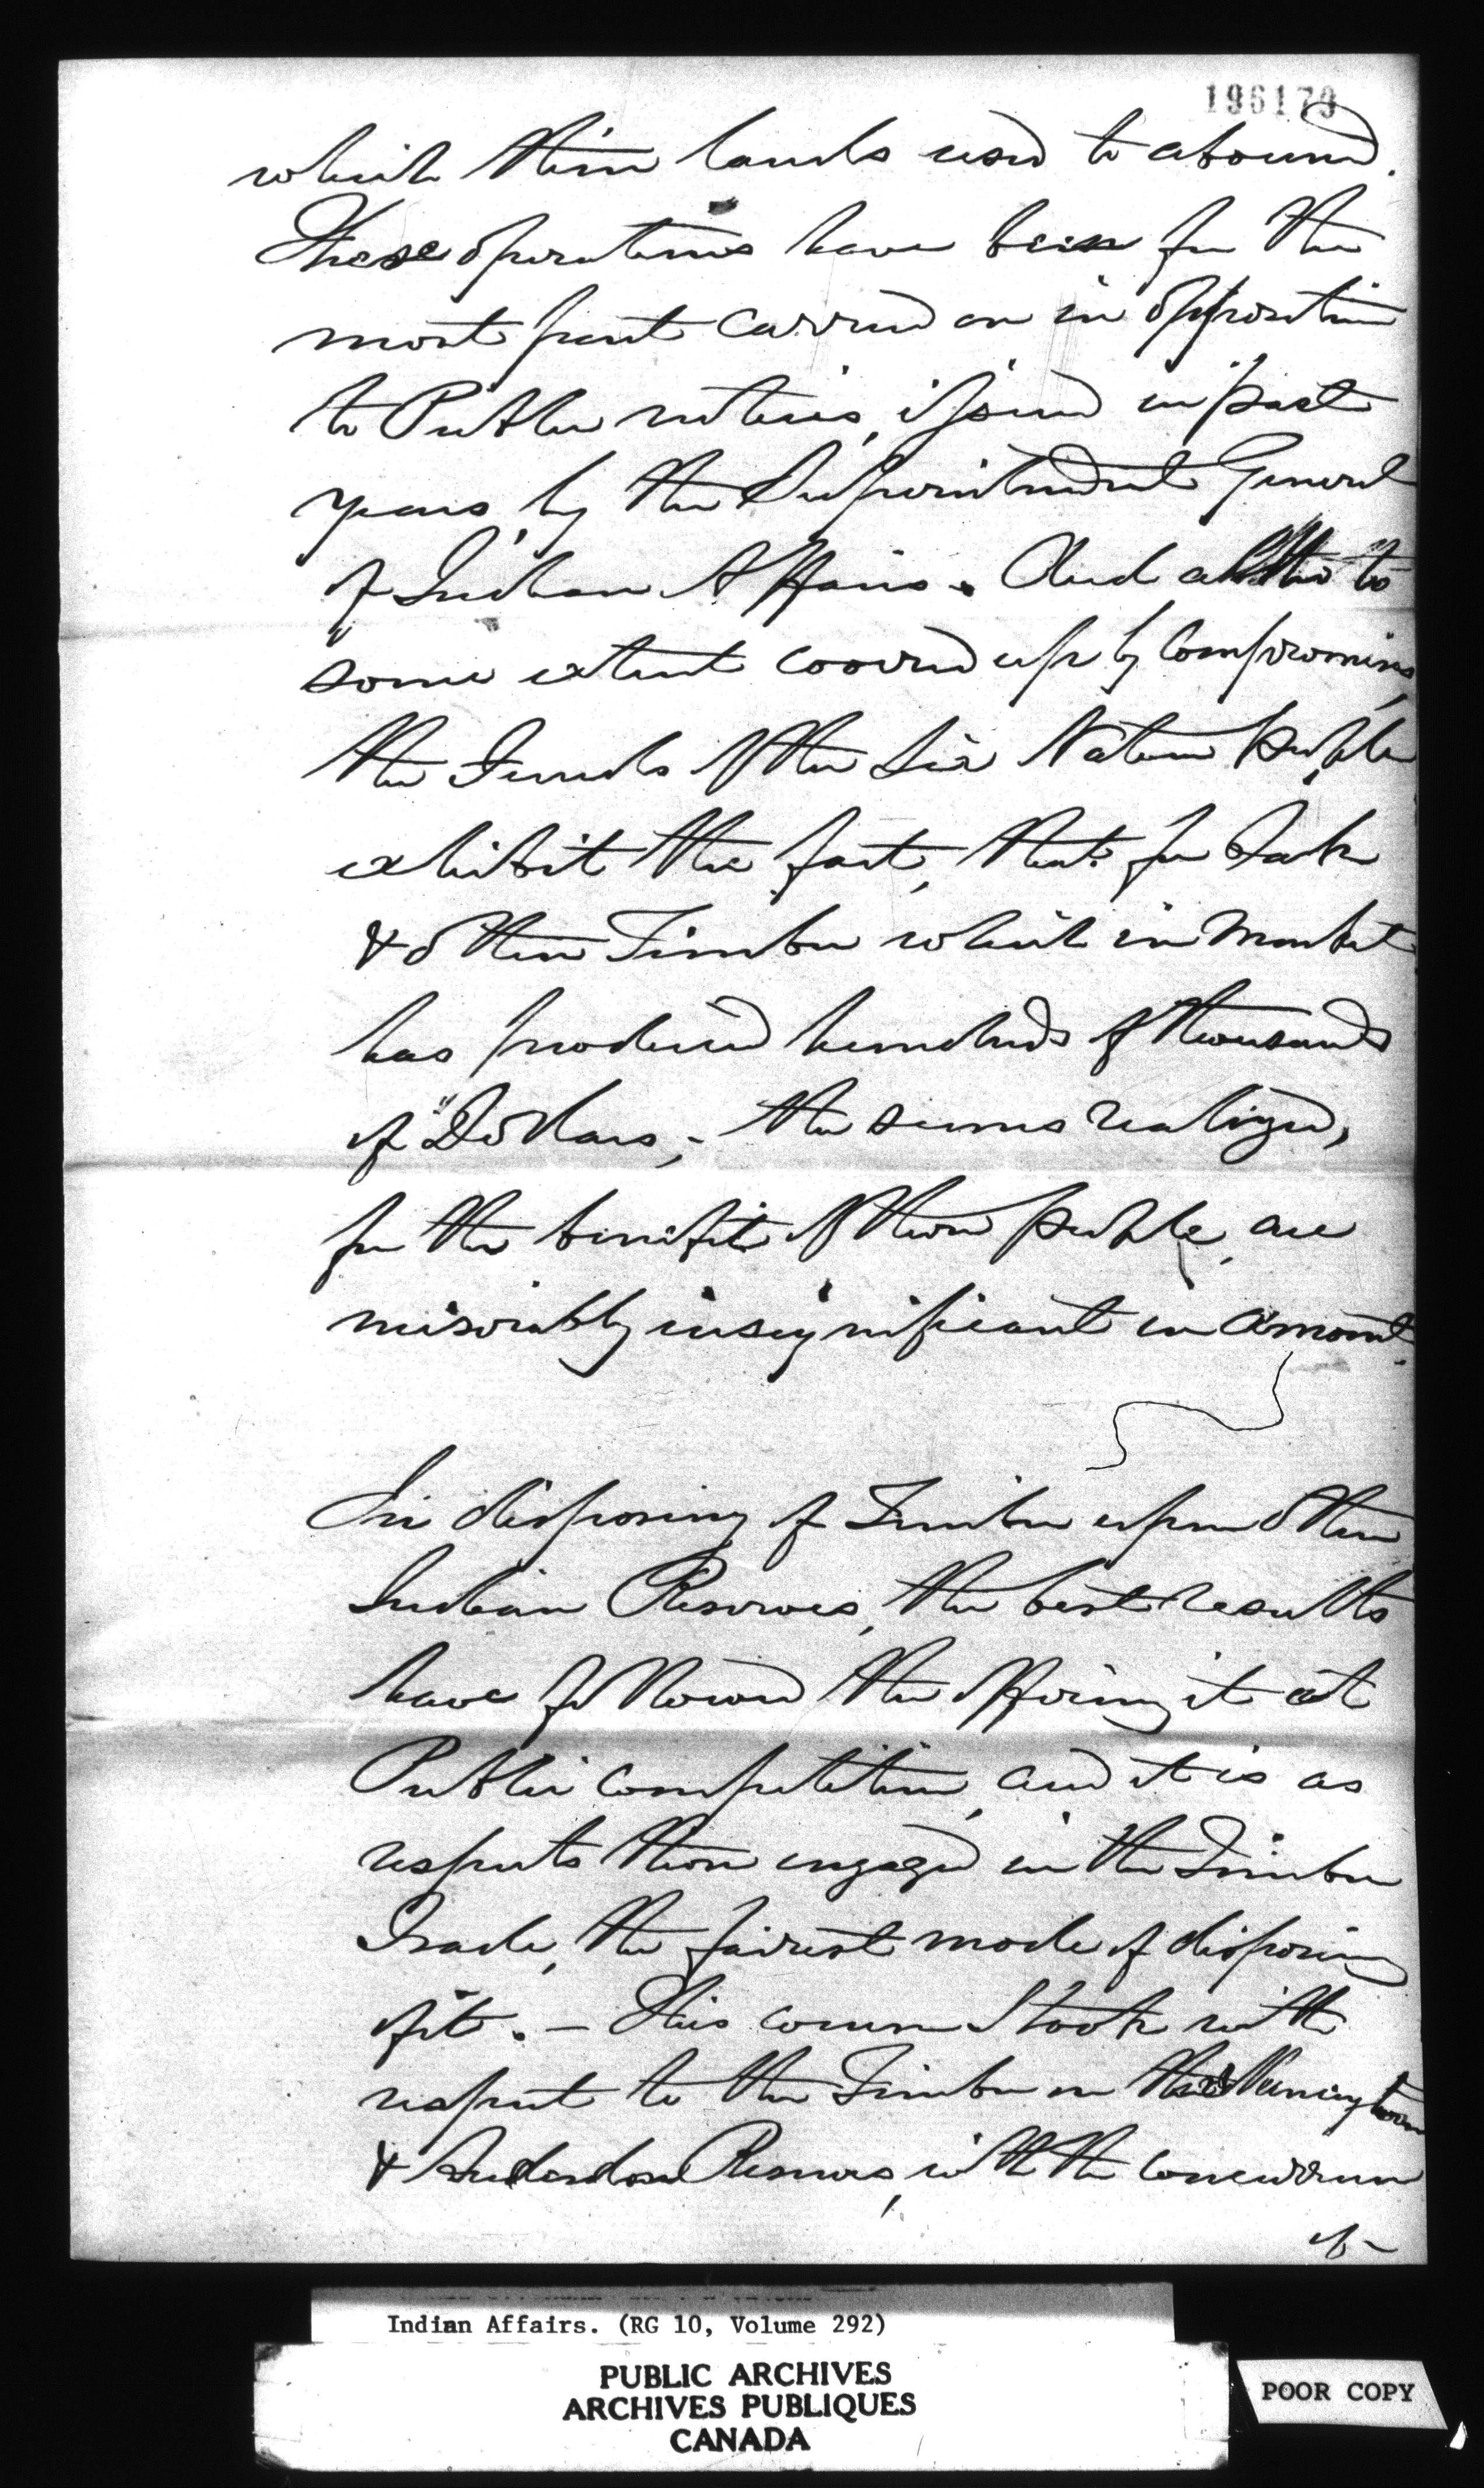 196179
which their lands used to abound.
These operations have been for the
most part carried on in opposition
to Public notices, issued in past
years, by the Superintendent General
of Indian Affairs. And altho' to
some extent covered up by compromises,
the Funds of the Six Nation people
exhibit the fact, that for Oak
& other Timber which in Market
has produced hundreds of thousands
of Dollars, - the sums realized,
for the benefit of these people, are
miserably insignificant in amount.
In disposing of Timber upon other
Indian Reserves, the best results
have followed the offering it at
Public competition, and it is as
respects those engaged in the Timber
Trade, the fairest mode of disposing
of it. — This course I took with
respect to the Timber on the
& Reserves, with the concurrence
of -
Indian Affairs. (RG 10, Volume 292)
PUBLIC ARCHIVES
ARCHIVES PUBLIQUES
CANADA
POOR COPY